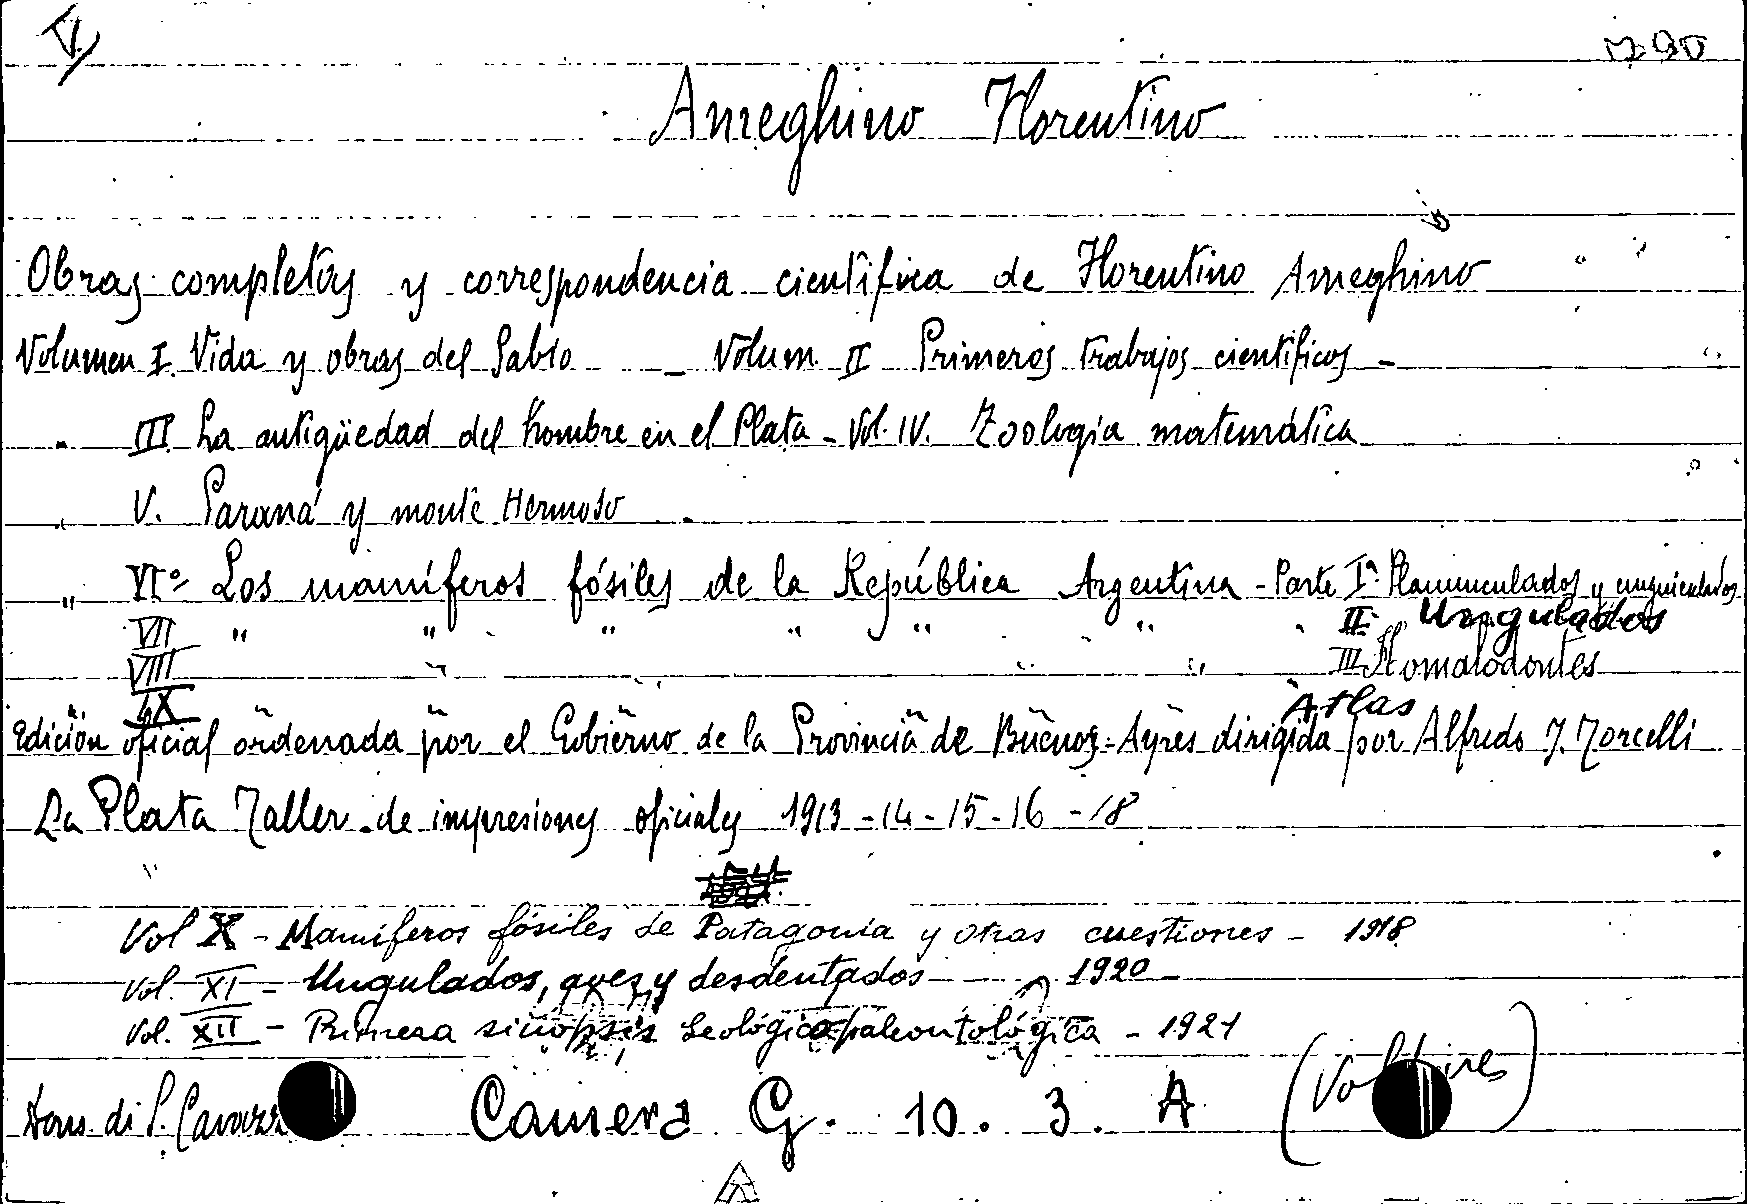 V
Ameghino Florentino
Obras completas y correspondencia cientifica de Florentino Ameghino
Volumen I. Vida y obras del Sabio — Volum. II Primeros trabajos cientificos -
" III La antigüedad del hombre en el Plata - Vol. IV. Zoologia matemática
" V. Paraná y monte Hermoso
" VI° Los mamíferos fósiles de la República Argentina - Parte Iª. Planunculados y unguiculados
VII " " " " " " " II. Ungulados
VIII " " " III Homalodontes
IX " " " " " Atlas
Edición oficial ordenada por el Gobierno de la Provincia de Buenos-Ayres dirigida por Alfredo J. Torcelli
La Plata Taller de impresiones oficiales 1913-14-15-16-18
Vol X - Mamíferos fósiles de Patagonia y otras cuestiones - 1918
Vol. XI - Ungulados, aves y desdentados - 1920 -
Vol. XII - Primera sinopsis geológica paleontológica - 1921
Dono di P. Camera G. 10. 3. A